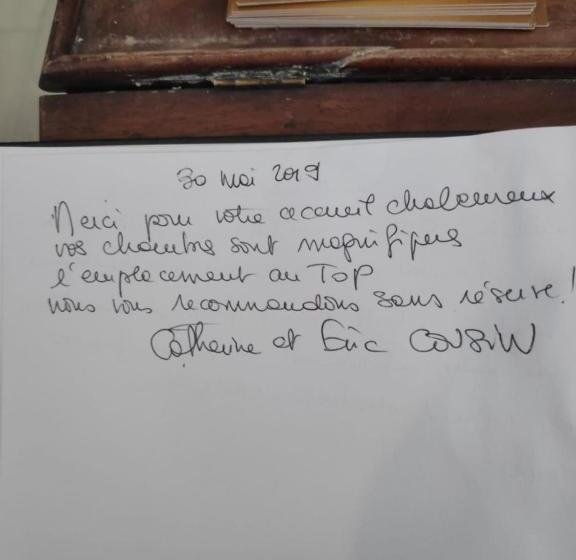 30 mai 2019
Merci pour votre accueil chaleureux
vos chambres sont magnifiques
l'emplacement au TOP
nous vous recommandons sans réserve !
Catherine et Eric COUSIN